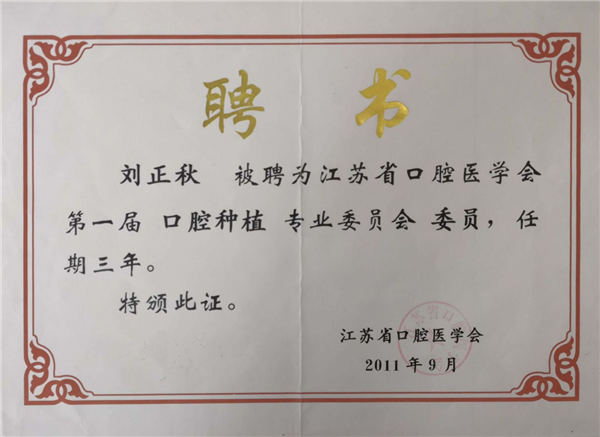 聘 书
刘正秋 被聘为江苏省口腔医学会
第一届 口腔种植 专业委员会 委员，任
期三年。
特颁此证。
江苏省口腔医学会
2011年9月